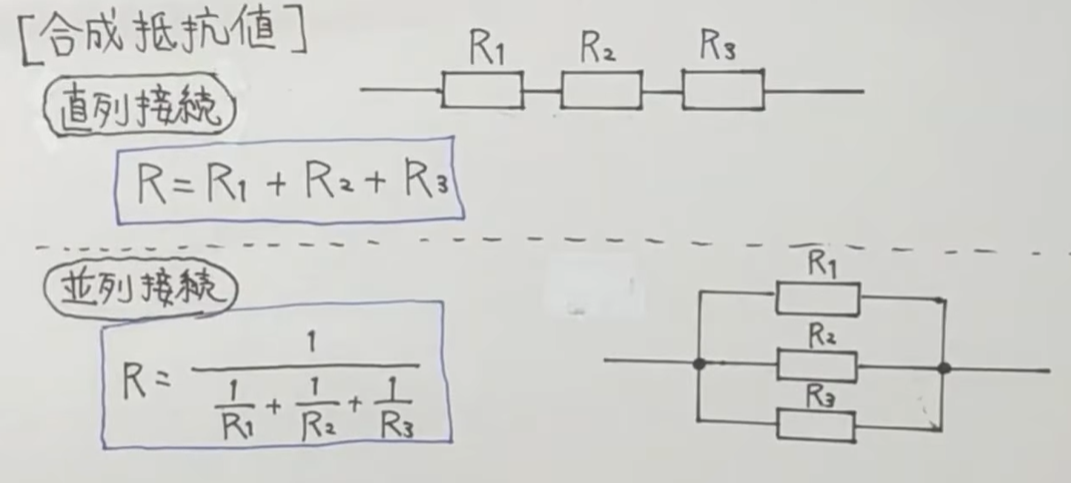 [合成抵抗値]
R₁ R₂ R₃
直列接続
R = R₁ + R₂ + R₃
並列接続
R = 1 / (1/R₁ + 1/R₂ + 1/R₃)
R₁
R₂
R₃